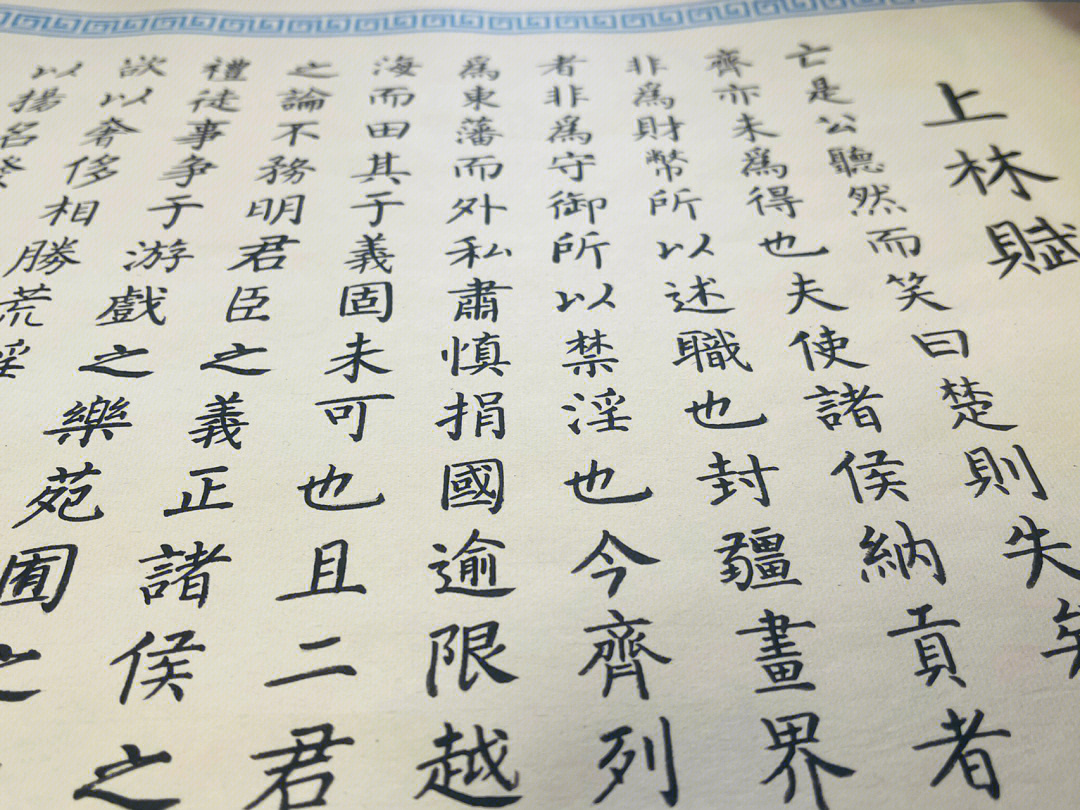 上林賦
亡是公聽然而笑曰楚則失矣
齊亦未爲得也夫使諸侯納貢者
非爲財幣所以述職也封疆畫界
者非爲守御所以禁淫也今齊列
爲東藩而外私肅慎捐國逾限越
海而田其于義固未可也且二君
之論不務明君臣之義正諸侯之
禮徒事争于游戲之樂苑囿之
欲以奢侈相勝荒淫
以揚名發